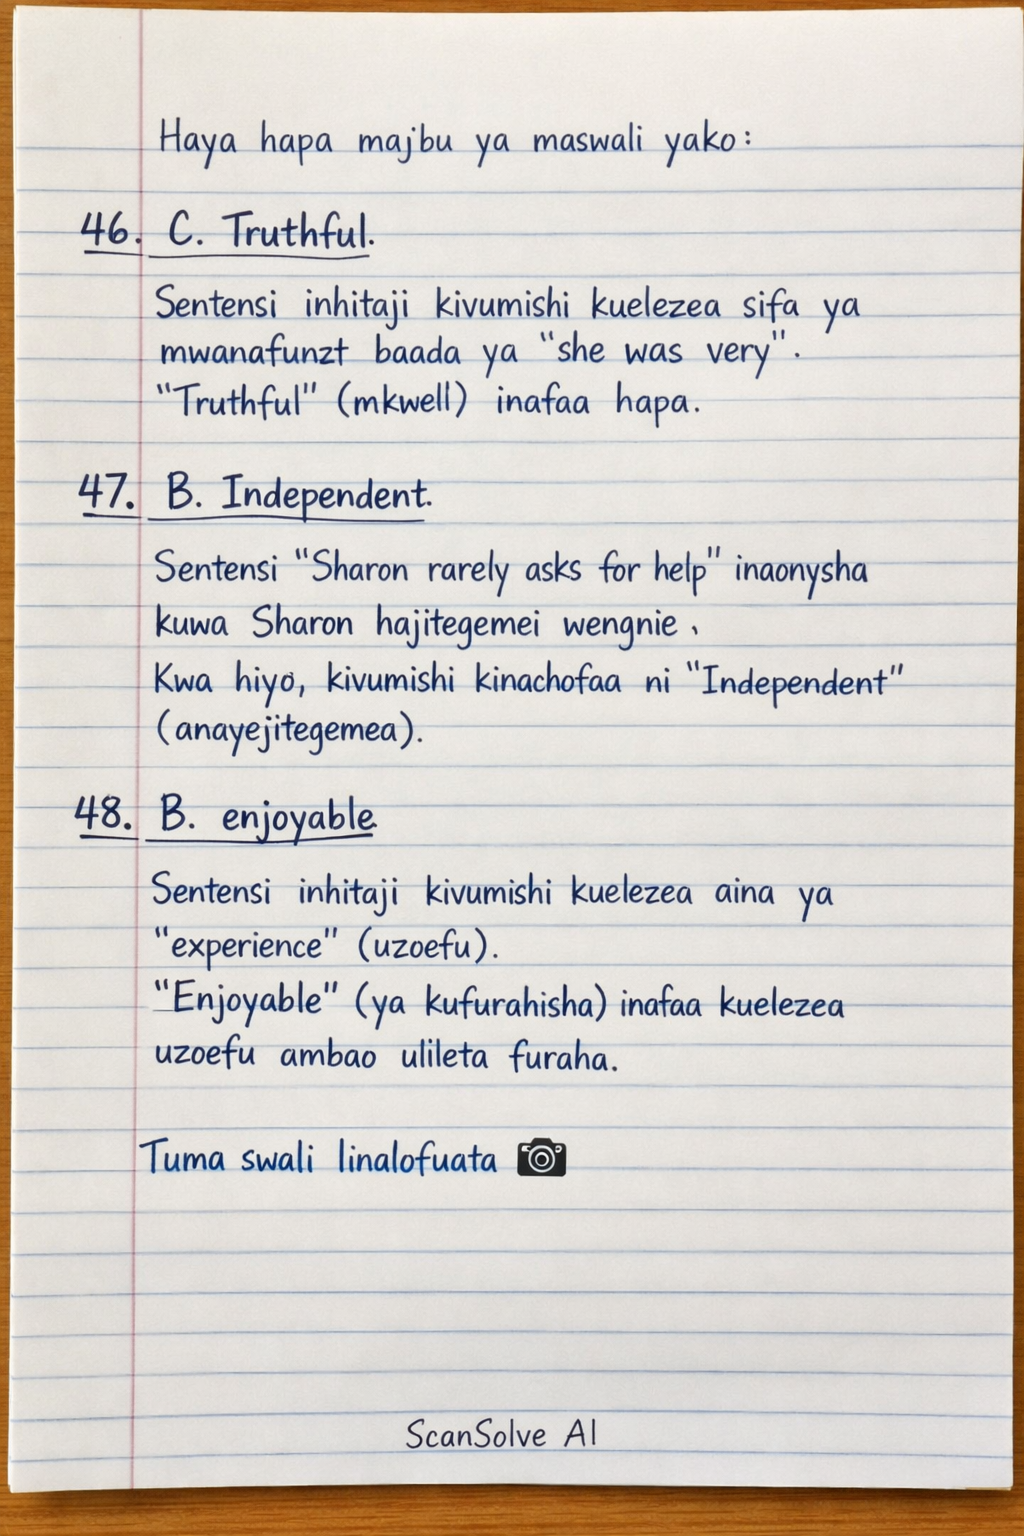 Haya hapa majbu ya maswali yako:
46. C. Truthful.
Sentensi inhitaji kivumishi kuelezea sifa ya
mwanafunzt baada ya "she was very".
"Truthful" (mkwell) inafaa hapa.
47. B. Independent.
Sentensi "Sharon rarely asks for help" inaonysha
kuwa Sharon hajitegemei wengnie.
Kwa hiyo, kivumishi kinachofaa ni "Independent"
(anayejitegemea).
48. B. enjoyable.
Sentensi inhitaji kivumishi kuelezea aina ya
"experience" (uzoefu).
"Enjoyable" (ya kufurahisha) inafaa kuelezea
uzoefu ambao ulileta furaha.
Tuma swali linalofuata
ScanSolve AI